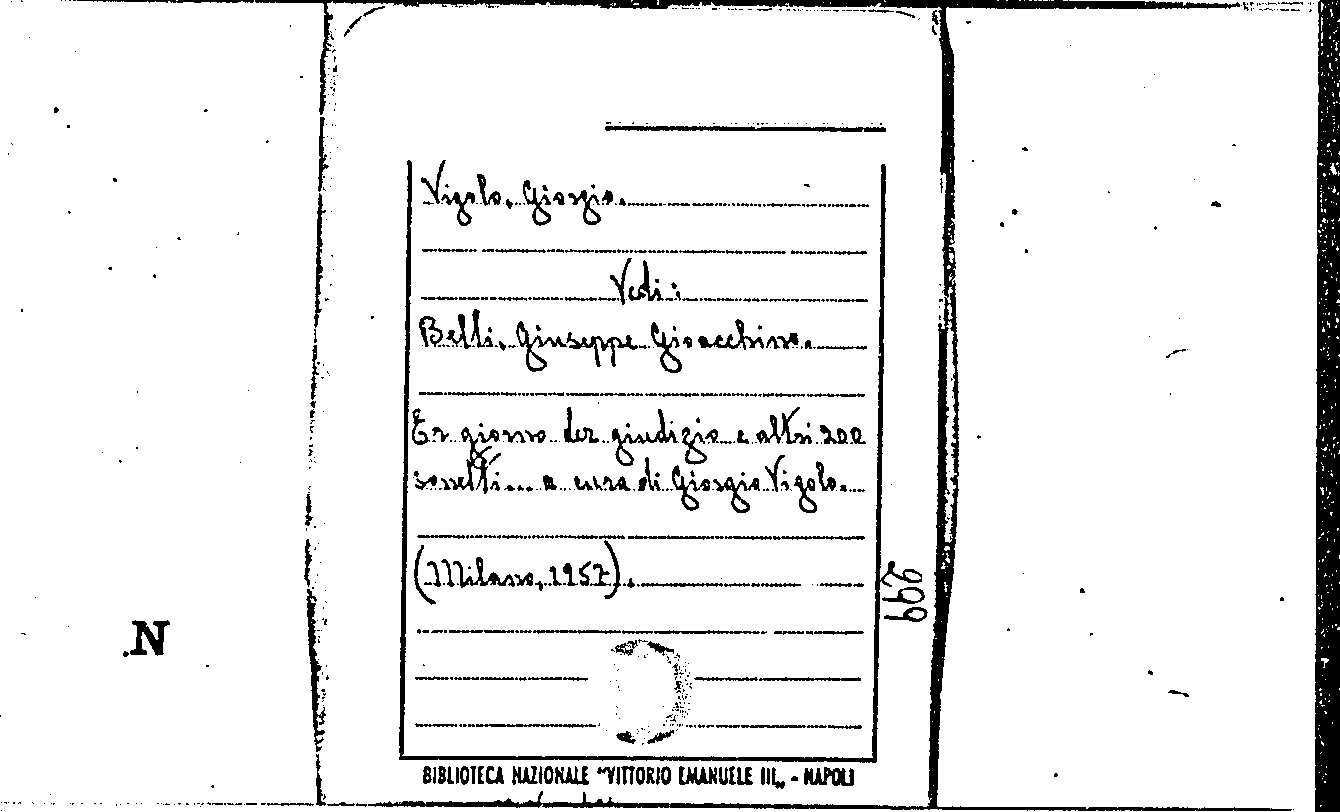 Vigolo, Giorgio.
Vedi:
Belli, Giuseppe Gioacchino.
Er giorno der giudizio e altri 200
sonetti... a cura di Giorgio Vigolo.
(Milano, 1957).
299
N
BIBLIOTECA NAZIONALE "VITTORIO EMANUELE III„ - NAPOLI